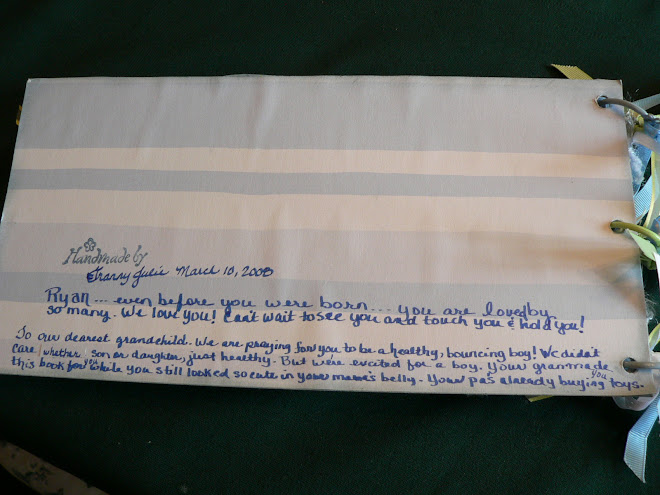 Handmade by
Granny Julie March 10, 2008
Ryan... even before you were born... you are loved by
so many. We love you! Can't wait to see you and touch you & hold you!
To our dearest grandchild. We are praying for you to be a healthy, bouncing boy! We didn't
care whether son or daughter, just healthy. But we're excited for a boy. Your gran made you
this book for you while you still looked so cute in your mama's belly. Your pa's already buying toys.